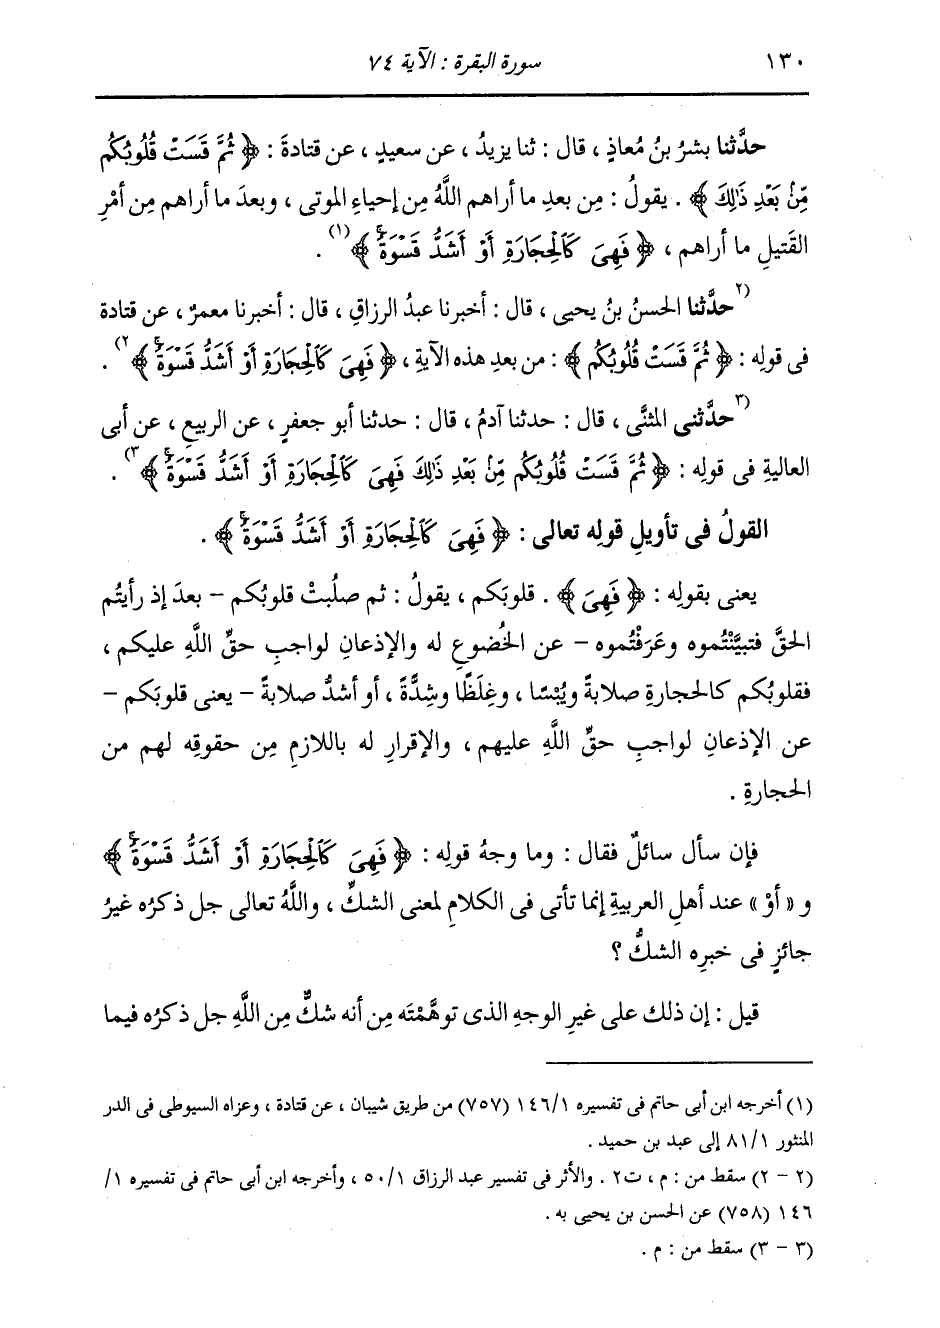 ١٣٠ سورة البقرة : الآية ٧٤
حدَّثنا بشرُ بنُ مُعاذٍ ، قال : ثنا يزيدُ ، عن سعيدٍ ، عن قتادةَ : ﴿ ثُمَّ قَسَتْ قُلُوبُكُم
مِّنۢ بَعْدِ ذَٰلِكَ ﴾ . يقولُ : مِن بعدِ ما أراهم اللَّهُ مِن إحياءِ الموتى ، وبعدَ ما أراهم مِن أمْرِ
القَتيلِ ما أراهم ، ﴿ فَهِىَ كَٱلْحِجَارَةِ أَوْ أَشَدُّ قَسْوَةً ﴾(١) .
(٢حدَّثنا الحسنُ بنُ يحيى ، قال : أخبرنا عبدُ الرزاقِ ، قال : أخبرنا معمرٌ ، عن قتادة
فى قولِه : ﴿ ثُمَّ قَسَتْ قُلُوبُكُم ﴾ : من بعدِ هذه الآيةِ ، ﴿ فَهِىَ كَٱلْحِجَارَةِ أَوْ أَشَدُّ قَسْوَةً ﴾٢) .
(٣حدَّثنى المثنَّى ، قال : حدثنا آدمُ ، قال : حدثنا أبو جعفرٍ ، عن الربيعِ ، عن أبى
العاليةِ فى قولِه : ﴿ ثُمَّ قَسَتْ قُلُوبُكُم مِّنۢ بَعْدِ ذَٰلِكَ فَهِىَ كَٱلْحِجَارَةِ أَوْ أَشَدُّ قَسْوَةً ﴾٣) .
القولُ فى تأويلِ قولِه تعالى : ﴿ فَهِىَ كَٱلْحِجَارَةِ أَوْ أَشَدُّ قَسْوَةً ﴾ .
يعنى بقولِه : ﴿ فَهِىَ ﴾ . قلوبَكم ، يقولُ : ثم صلُبتْ قلوبُكم – بعدَ إذ رأيتُم
الحقَّ فتبيَّنْتُموه وعَرَفْتُموه – عن الخُضوعِ له والإذعانِ لواجبِ حقِّ اللَّهِ عليكم ،
فقلوبُكم كالحجارةِ صلابةً ويُبْسًا ، وغِلَظًا وشِدَّةً ، أو أشدُّ صلابةً – يعنى قلوبَكم –
عن الإذعانِ لواجبِ حقِّ اللَّهِ عليهم ، والإقرارِ له باللازمِ مِن حقوقِه لهم من
الحجارةِ .
فإن سأل سائلٌ فقال : وما وجهُ قولِه : ﴿ فَهِىَ كَٱلْحِجَارَةِ أَوْ أَشَدُّ قَسْوَةً ﴾
و « أوْ » عند أهلِ العربيةِ إنما تأتى فى الكلامِ لمعنى الشكِّ ، واللَّهُ تعالى جل ذكرُه غيرُ
جائزٍ فى خبرِه الشكُّ ؟
قيل : إن ذلك على غيرِ الوجهِ الذى توهَّمْتَه مِن أنه شكٌّ مِن اللَّهِ جل ذكرُه فيما
(١) أخرجه ابن أبى حاتم فى تفسيره ١٤٦/١ (٧٥٧) من طريق شيبان ، عن قتادة ، وعزاه السيوطى فى الدر
المنثور ٨١/١ إلى عبد بن حميد .
(٢ – ٢) سقط من : م ، ت٢ . والأثر فى تفسير عبد الرزاق ٥٠/١ ، وأخرجه ابن أبى حاتم فى تفسيره ١/
١٤٦ (٧٥٨) عن الحسن بن يحيى به .
(٣ – ٣) سقط من : م .